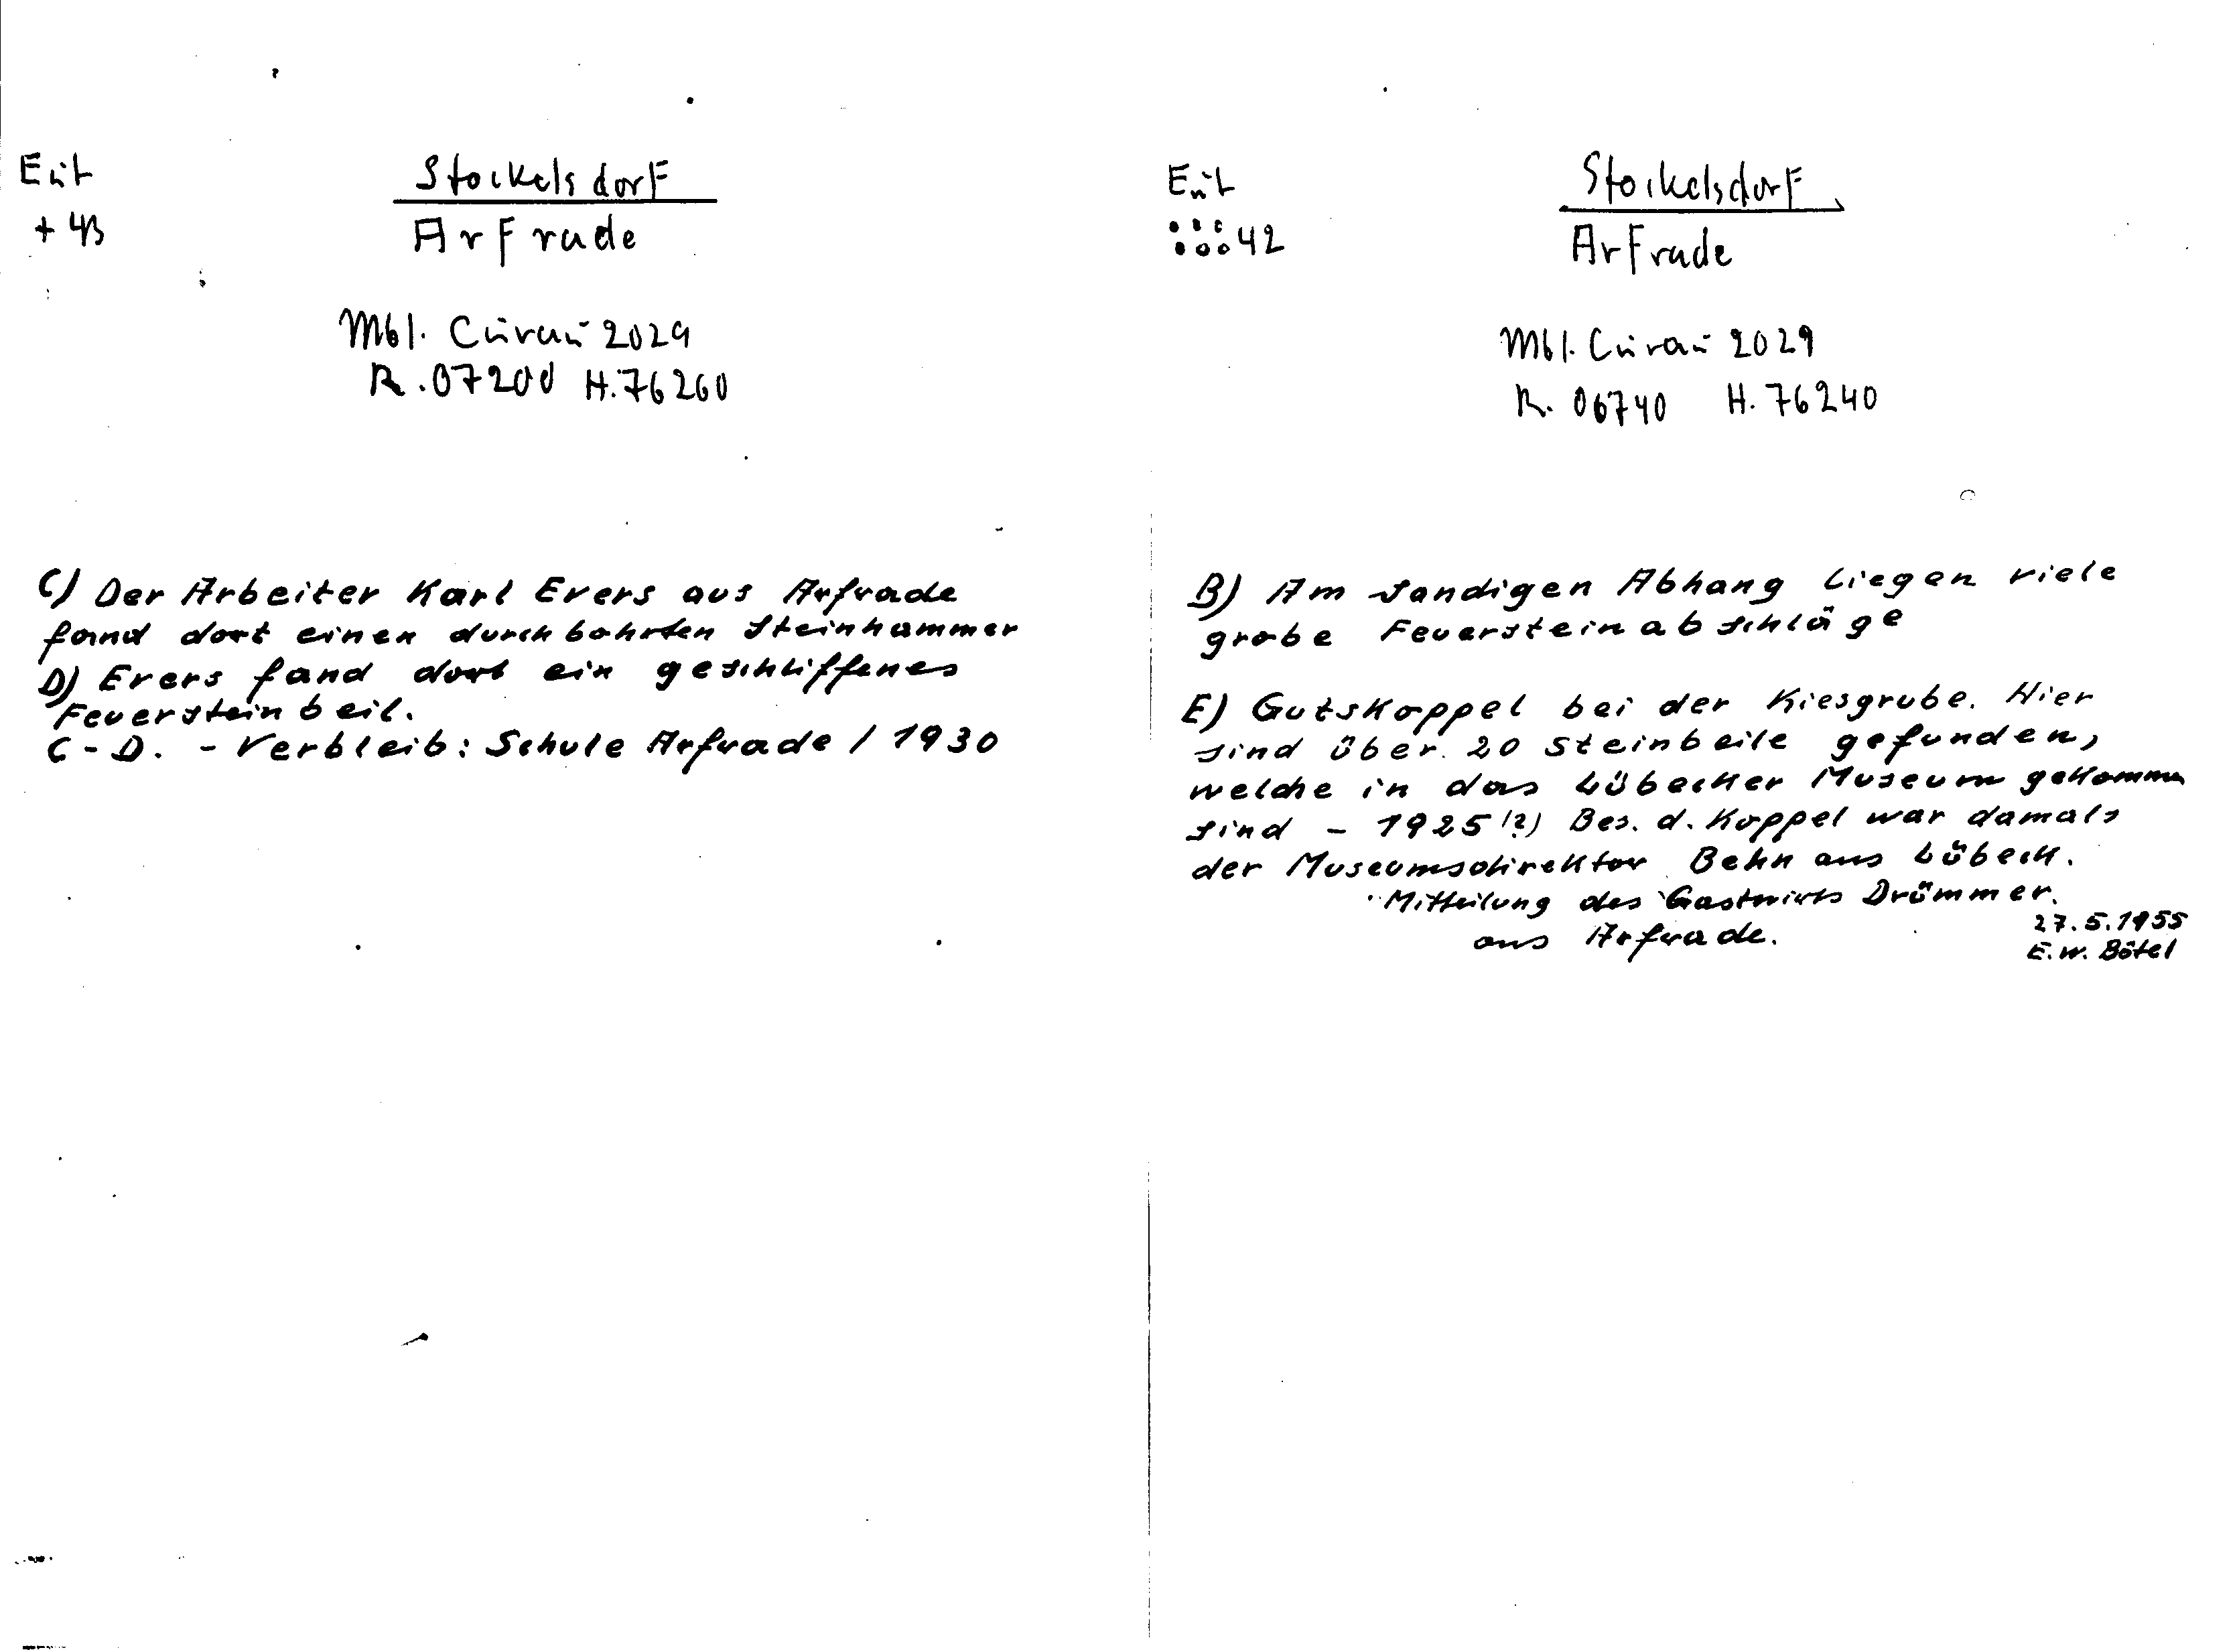 Eut
+ 43
Stockelsdorf
Arfrade
Mbl. Curau 2029
R. 07200 H. 76260
C) Der Arbeiter Karl Evers aus Arfrade
fand dort einen durchbohrten Steinhammer
D) Evers fand dort ein geschliffenes
Feuersteinbeil.
C-D. - Verbleib: Schule Arfrade / 1930
Eut
42
Stockelsdorf
Arfrade
Mbl. Curau 2029
R. 06740 H. 76240
B) Am sandigen Abhang liegen viele
grobe Feuersteinabschläge
E) Gutskoppel bei der Kiesgrube. Hier
sind über 20 Steinbeile gefunden,
welche in das Lübecker Museum gekommen
sind - 1925 (?) Bes. d. Koppel war damals
der Museumsdirektor Behn aus Lübeck.
Mitteilung des Gastwirts Drümmer.
aus Arfrade.
27.5.1955
E.W. Bötel